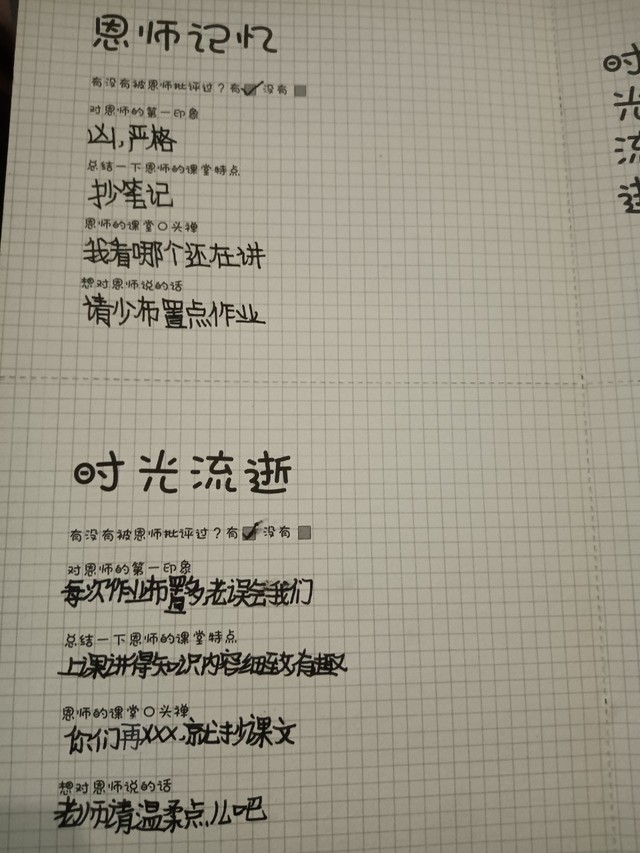 恩师记忆
有没有被恩师批评过？有 没有
对恩师的第一印象
凶，严格
总结一下恩师的课堂特点
抄笔记
恩师的课堂口头禅
我看哪个还在讲
想对恩师说的话
请少布置点作业
时光流逝
有没有被恩师批评过？有 没有
对恩师的第一印象
每次作业布置多，老误会我们
总结一下恩师的课堂特点
上课讲得知识内容细致，有趣
恩师的课堂口头禅
你们再XXX，就抄课文
想对恩师说的话
老师请温柔点儿吧
时
光
流
逝